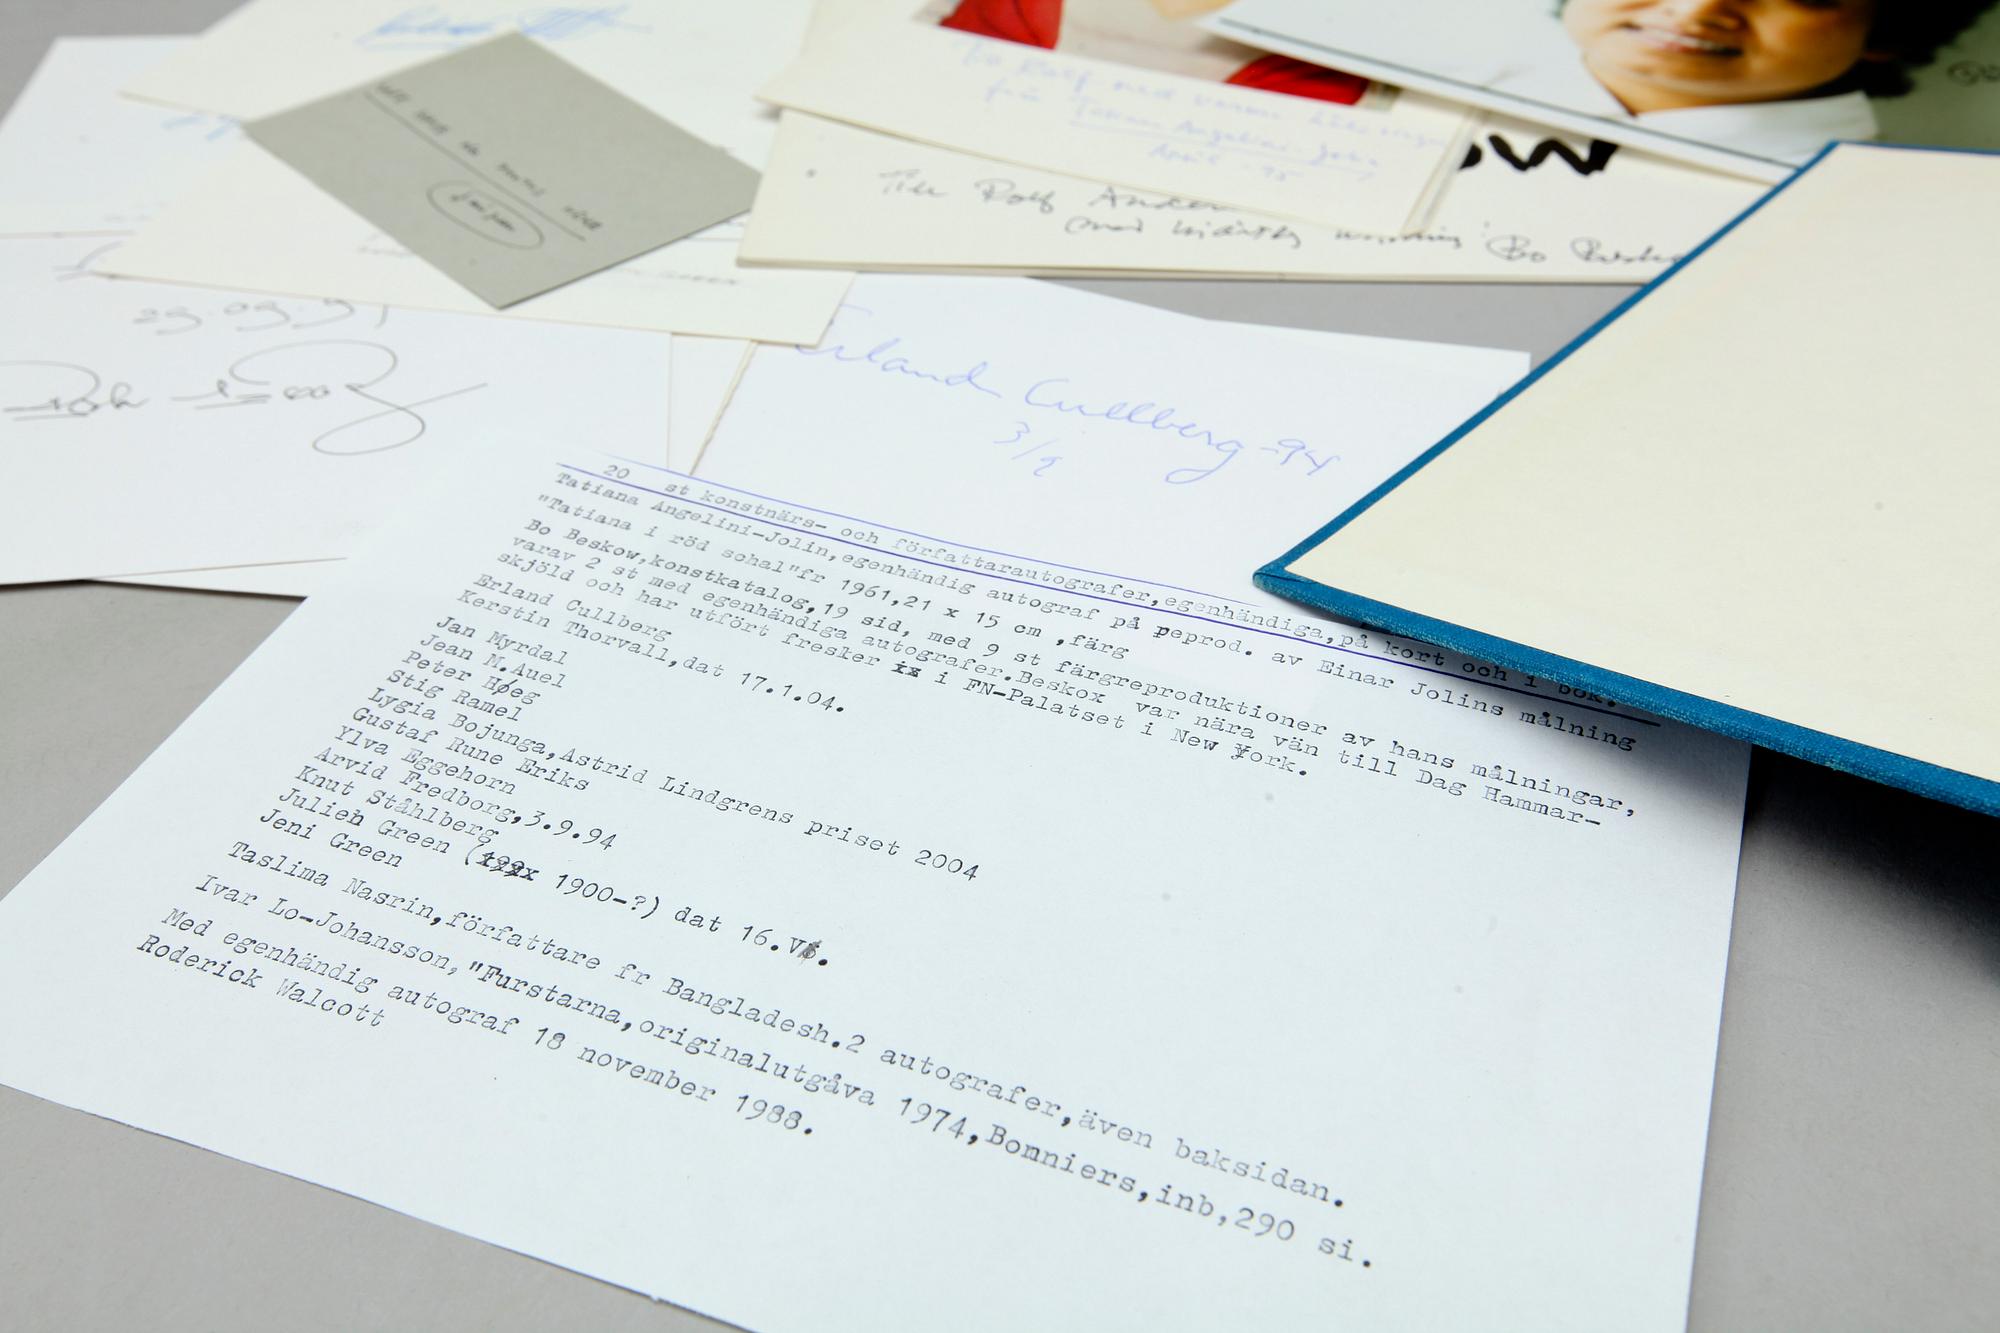 Till Rolf
Bo
Erland Cullberg -94
3/9
20 st konstnärs- och författarautografer,egenhändiga,på kort och i bok.
Tatiana Angelini-Jolin,egenhändig autograf på peprod. av Einar Jolins målning
"Tatiana i röd schal"fr 1961,21 x 15 cm ,färg
Bo Beskow,konstkatalog,19 sid, med 9 st färgreproduktioner av hans målningar,
varav 2 st med egenhändiga autografer.Beskox var nära vän till Dag Hammar-
skjöld och har utfört fresker ix i FN-Palatset i New York.
Erland Cullberg
Kerstin Thorvall,dat 17.1.04.
Jan Myrdal
Jean M.Auel
Peter Høeg
Stig Ramel
Lygia Bojunga,Astrid Lindgrens priset 2004
Gustaf Rune Eriks
Ylva Eggehorn
Arvid Fredborg,3.9.94
Knut Ståhlberg
Julieh Green ( 1900-?) dat 16.
Jeni Green
Taslima Nasrin,författare fr Bangladesh.2 autografer,även baksidan.
Ivar Lo-Johansson,"Furstarna,originalutgåva 1974,Bonniers,inb,290 si.
Med egenhändig autograf 18 november 1988.
Roderick Walcott